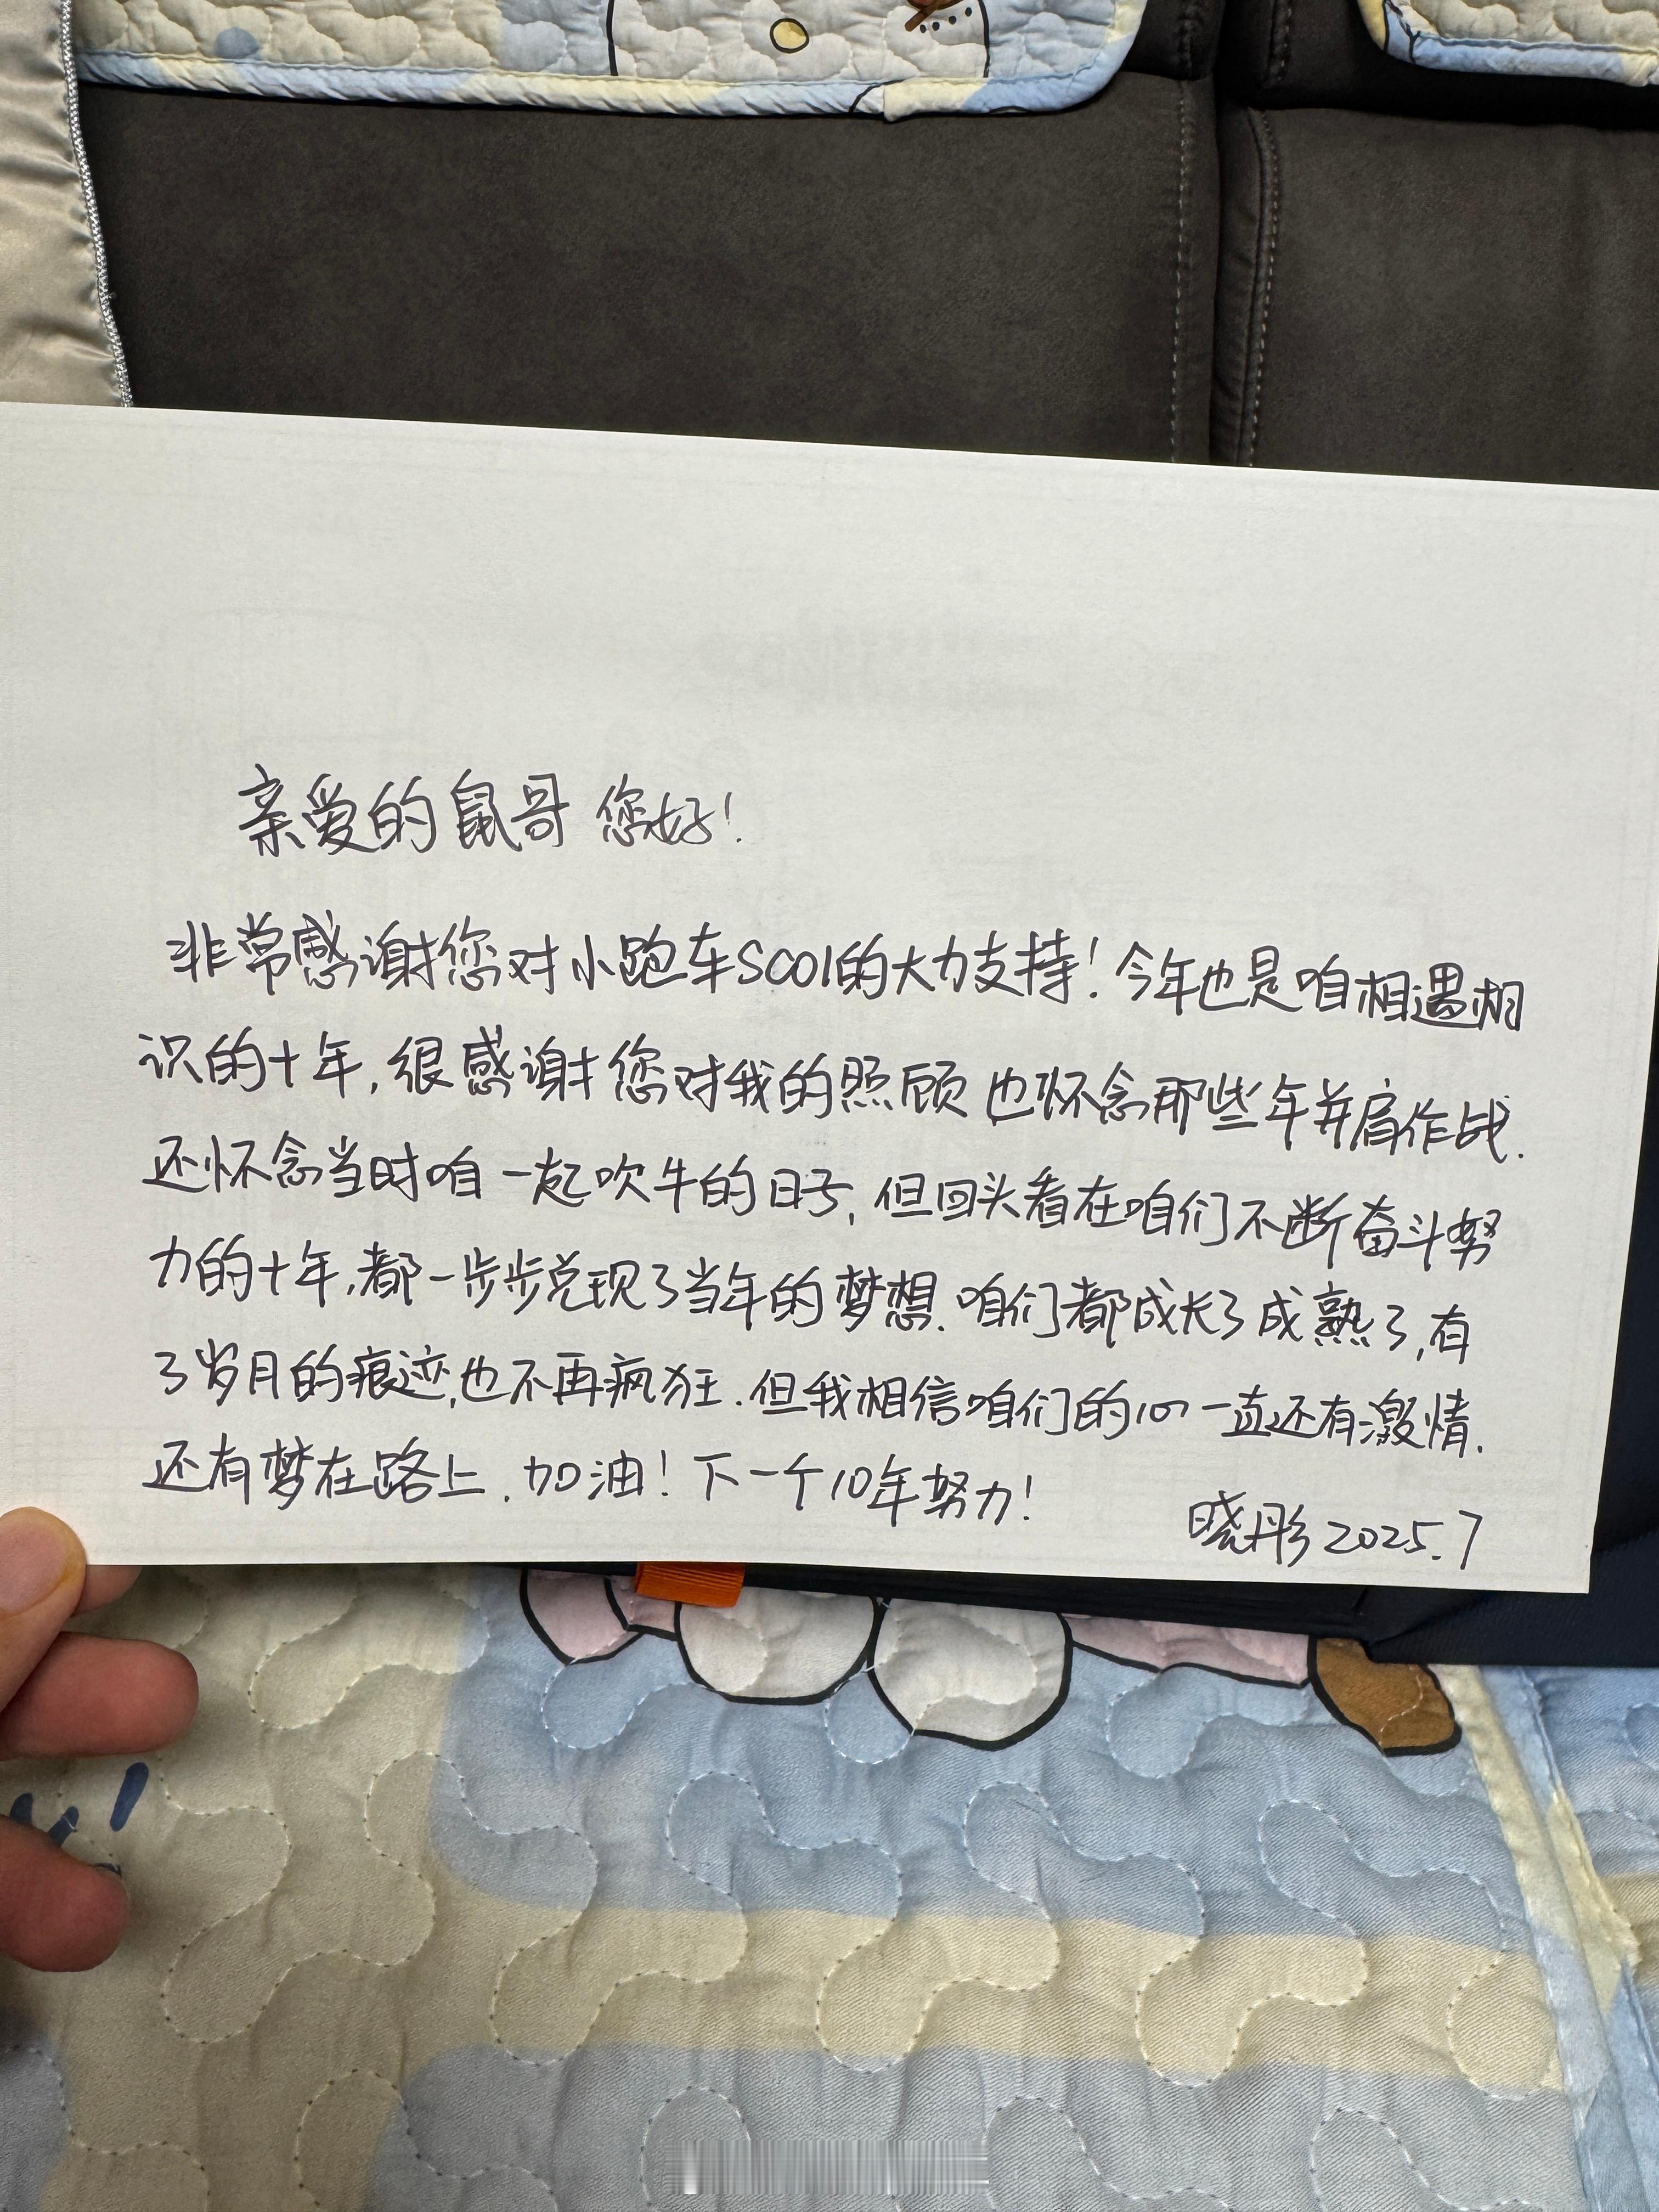 亲爱的鼠哥 您好!
非常感谢您对小跑车SC01的大力支持!今年也是咱相遇相
识的十年,很感谢您对我的照顾 也怀念那些年并肩作战.
还怀念当时咱一起吹牛的日子,但回头看在咱们不断奋斗努
力的十年,都一步步兑现了当年的梦想.咱们都成长了成熟了,有
了岁月的痕迹,也不再疯狂.但我相信咱们的心一直还有激情.
还有梦在路上.加油!下一个10年努力!
晓彤 2025.7